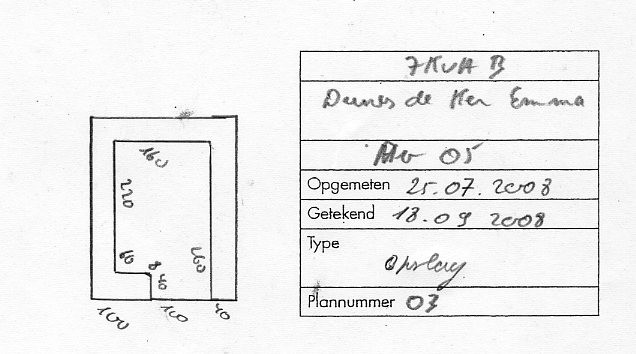 7KVA B
Dunes de Ker Emma
Mv 05
Opgemeten 25.07.2008
Getekend 18.09 2008
Type
Opslag
Plannummer 03
160
220
60
8
40
260
100
100
40